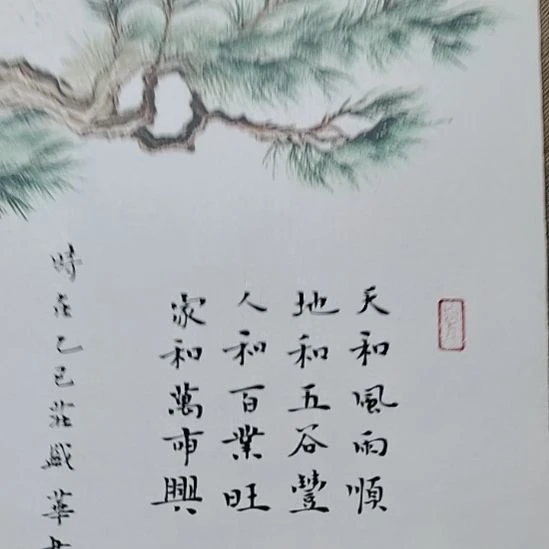 天和風雨順
地和五谷豐
人和百業旺
家和萬事興
時在乙巳莊盛華